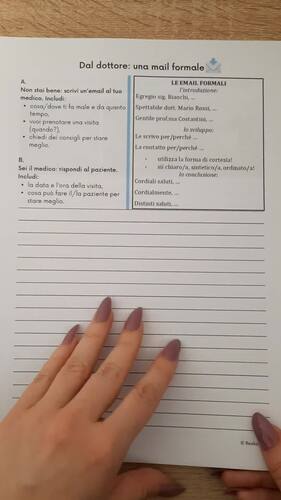 Dal dottore: una mail formale
A.
Non stai bene: scrivi un'email al tuo
medico. Includi:
• cosa/dove ti fa male e da quanto
tempo,
• vuoi prenotare una visita
(quando?),
• chiedi dei consigli per stare
meglio.
B.
Sei il medico: rispondi al paziente.
Includi:
• la data e l'ora della visita,
• cosa può fare il/la paziente per
stare meglio.
LE EMAIL FORMALI
l'introduzione:
Egregio sig. Bianchi, ...
Spettabile dott. Mario Rossi, ...
Gentile prof.ssa Costantini, ...
lo sviluppo:
Le scrivo per/perché ...
La contatto per/perché ...
- utilizza la forma di cortesia!
- sii chiaro/a, sintetico/a, ordinato/a!
la conclusione:
Cordiali saluti, ...
Cordialmente, ...
Distinti saluti, ...